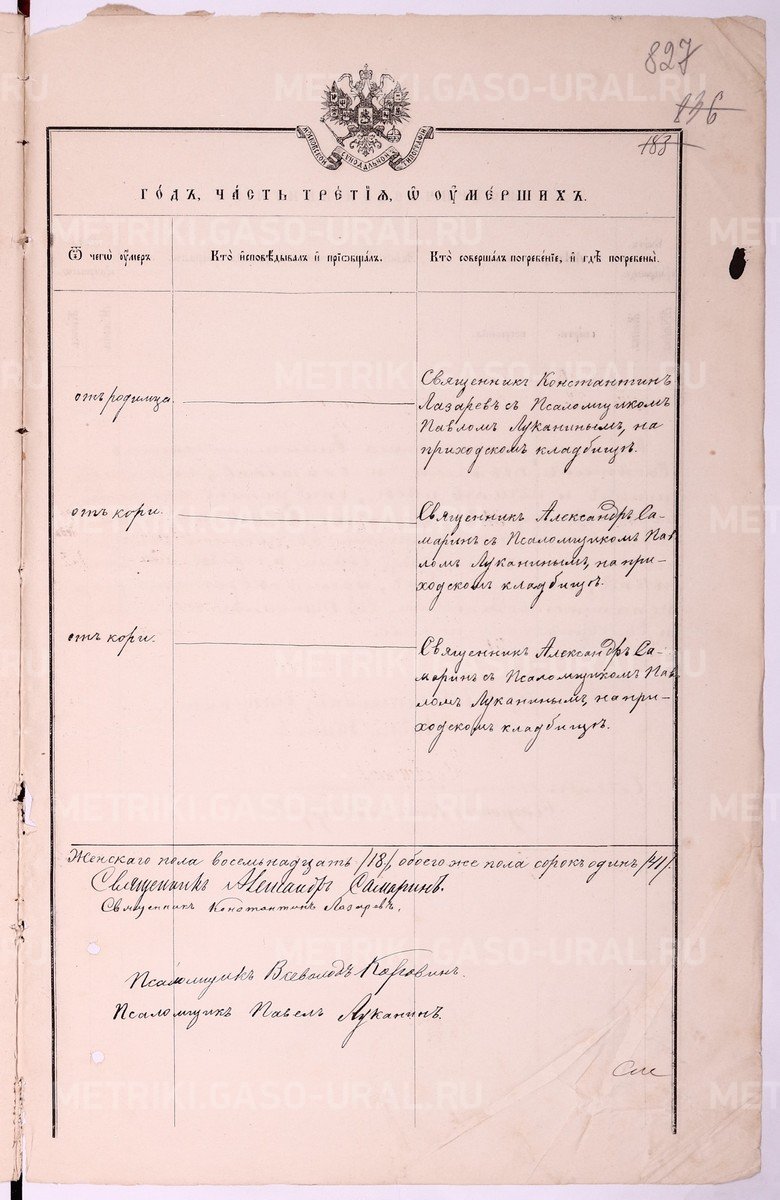 827
136
183
МОСКОВСКОЙ СѴНОДАЛЬНОЙ ТИПОГРАФІИ
ГО́ДЪ, ЧА́СТЬ ТРЕ́ТІѦ, Ѡ҆ ОУ҆МЕ́РШИХЪ.
Ѿ чегѡ̀ оу҆́меръ
Кто̀ и҆сповѣ́дывалъ и҆ прїѡбща́лъ.
Кто̀ соверша́лъ погребе́нїе, и҆ гдѣ̀ погребены̀.
отъ родимца.
Священникъ Константинъ
Лазаревъ съ Псаломщикомъ
Павломъ Луканинымъ, на
приходскомъ кладбищѣ.
отъ кори.
Священникъ Александръ Са-
маринъ съ Псаломщикомъ Пав-
ломъ Луканинымъ, на при-
ходскомъ кладбищѣ.
отъ кори.
Священникъ Александръ Са-
маринъ съ Псаломщикомъ Пав-
ломъ Луканинымъ, на при-
ходскомъ кладбищѣ.
Женскаго пола восемьнадцать /18/, обоего же пола сорокъ одинъ /41/.
Священникъ Александръ Самаринъ.
Священникъ Константинъ Лазаревъ.
Псаломщикъ Всеволодъ Коровинъ.
Псаломщикъ Павелъ Луканинъ.
METRIKI.GASO-URAL.RU